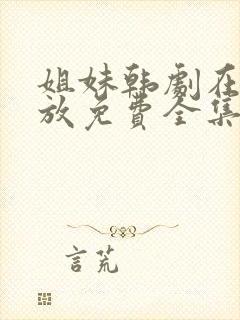 姐妹韩剧在
放免费全集
言荒